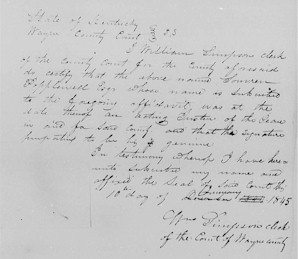 State of Kentucky
Wayne County Court S.S.
I William Simpson clerk
of the County Court for the County aforesaid
do certify that the above named
whose name is subscribed
to the foregoing affidavit, was at the
date thereof an acting Justice of the Peace
in and for said County, and that the signature
purporting to be his is genuine
In testimony Whereof I have here
unto subscribed my name and
affixed the Seal of said Court this
10th day of 1845
Simpson clerk
of the Court of Wayne County